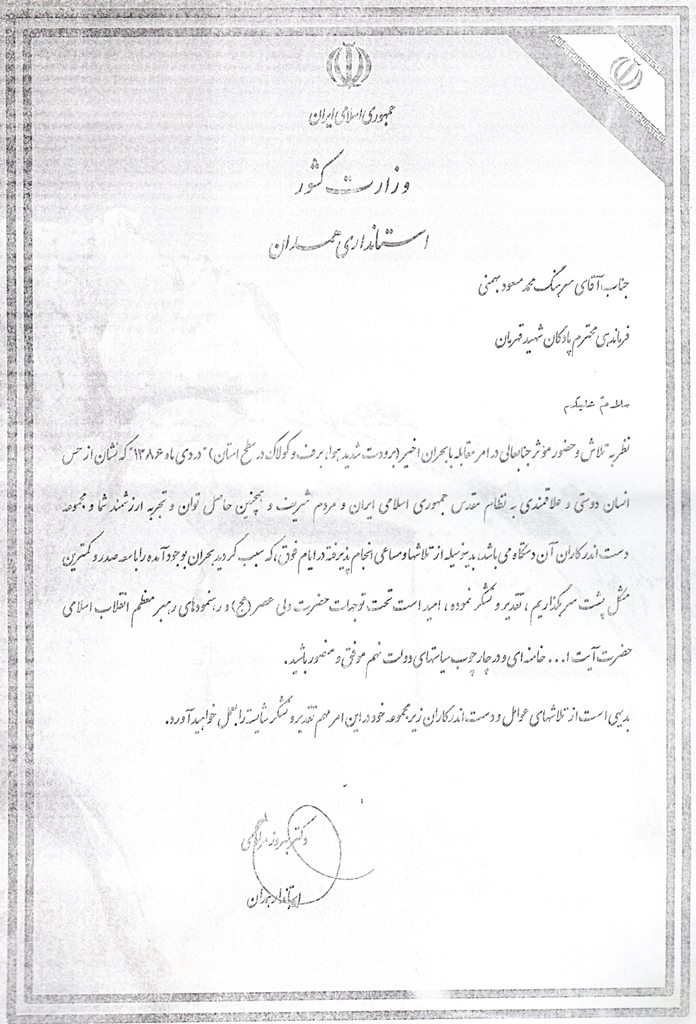 جمهوری اسلامی ایران
وزارت کشور
استانداری همدان
جناب آقای سرهنگ محمد مسعود بهمنی
فرماندهی محترم پادگان شهید قهرمان
سلام علیکم
نظر به تلاش و حضور مؤثر جنابعالی در امر مقابله با بحران اخیر (برودت شدید هوا، برف و کولاک در سطح استان) "در دی ماه ۱۳۸۶" که نشان از حس
انسان دوستی و علاقمندی به نظام مقدس جمهوری اسلامی ایران و مردم شریف و همچنین حاصل توان و تجربه ارزشمند شما و مجموعه
دست اندرکاران آن دستگاه می باشد، بدینوسیله از تلاشها و مساعی انجام پذیرفته در ایام فوق، که سبب گردید بحران بوجود آمده را با سعه صدر و کمترین
مشکل پشت سر بگذاریم، تقدیر و تشکر نموده، امید است تحت توجهات حضرت ولی عصر (عج) و رهنمودهای رهبر معظم انقلاب اسلامی
حضرت آیت ا... خامنه ای و در چارچوب سیاستهای دولت نهم موفق و منصور باشید.
بدیهی است از تلاشهای عوامل و دست اندرکاران زیرمجموعه خود در این امر مهم تقدیر و تشکر شایسته را بعمل خواهید آورد.
دکتر بهروز مرادی
استاندار همدان